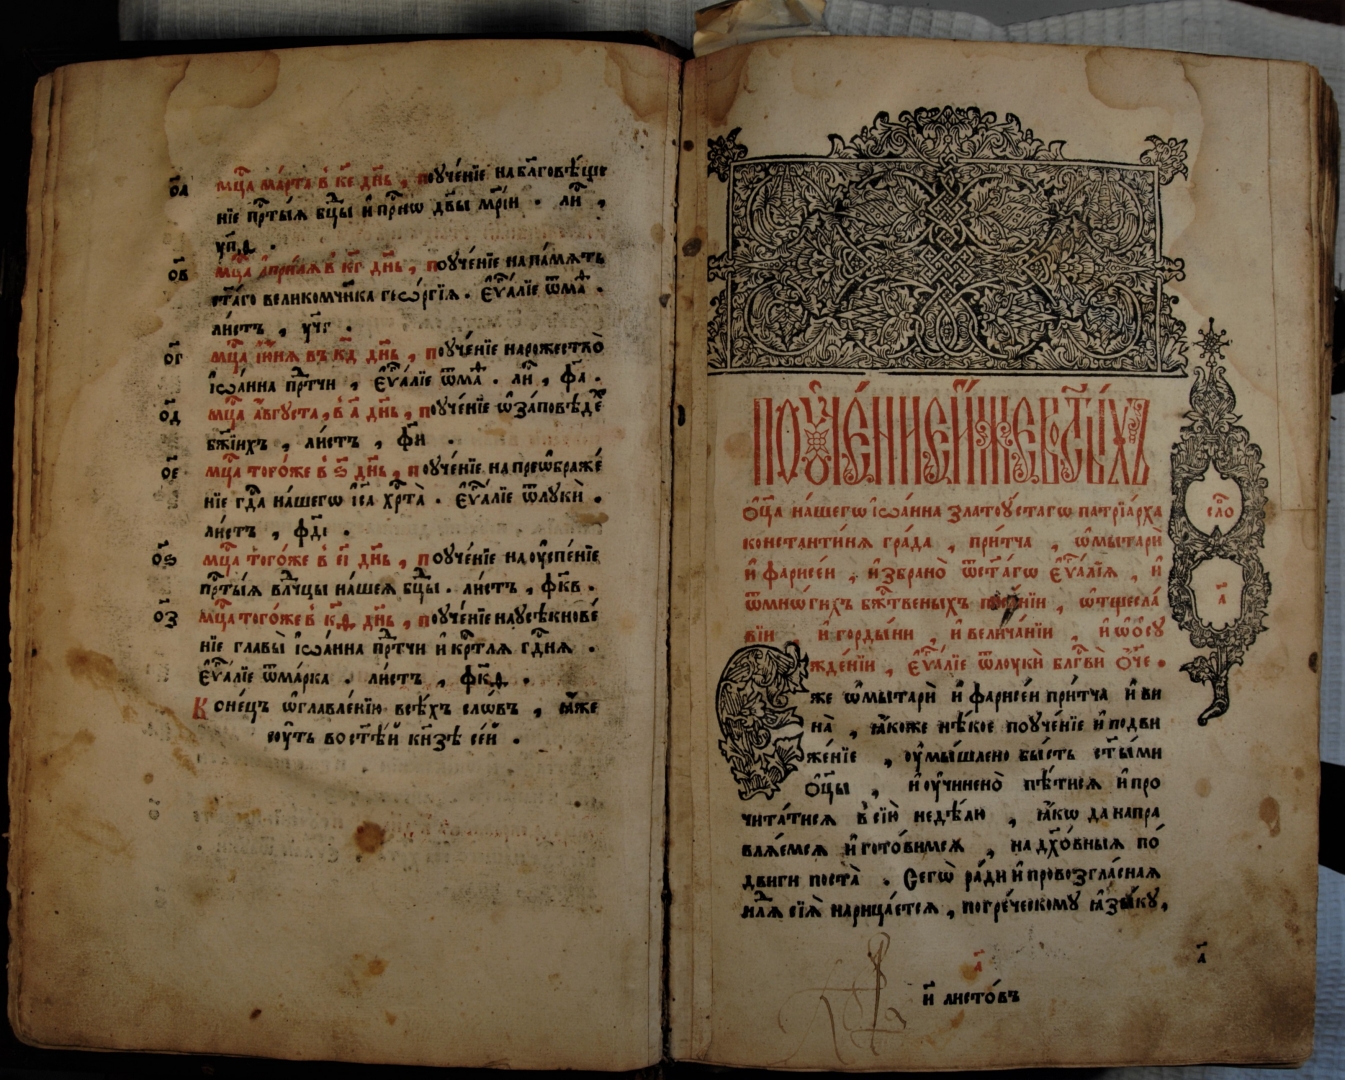 о҃а мц҃а ма́рта в҆ к҃е дн҃ь, поуче́нїе на бл҃гове́ще
нїе прⷭ҇ты́ѧ бц҃ы и҆ приⷭ҇нѡ дв҃ы мр҃і́и . лиⷭ҇ ,
о҃в мц҃а а҆прі́лѧ в҆ к҃г дн҃ь, поуче́нїе на па́мѧть
ст҃а́го великомч҃ника гео́ргїѧ . є҆ѵⷢ҇а́лїе ѿ маⷴ҇ .
ли́стъ , у҃чг .
о҃г мц҃а і҆ю́нѧ въ к҃д дн҃ь, поуче́нїе на рожество̀
і҆ѡа́нна прⷣте́чи , є҆ѵⷢ҇а́лїе ѿ маⷴ҇ . лиⷭ҇ , ф҃а .
о҃д мц҃а а҆́вгуста, в҆ а҃ дн҃ь, поуче́нїе ѡ҆ за́повѣдеⷯ
бж҃їихъ , ли́стъ , ф҃и .
о҃е мц҃а того́же в҆ ѕ҃ дн҃ь, поуче́нїе на преѡбраже́
нїе гдⷭ҇а на́шегѡ і҆с҃а хрⷭ҇та̀ . є҆ѵⷢ҇а́лїе ѿ лукѝ .
ли́стъ , ф҃ді .
о҃ѕ мц҃а того́же в҆ е҃і дн҃ь, поуче́нїе на ѹ҆спе́нїе
прⷭ҇ты́ѧ влⷣчцы на́шеѧ бц҃ы . ли́стъ , ф҃кв .
о҃з мц҃а того́же в҆ к҃ѳ дн҃ь, поуче́нїе на усѣкнове́
нїе главы̀ і҆ѡа́нна прⷣте́чи и҆ крⷭ҇ти́тлѧ гдⷭ҇нѧ .
є҆ѵⷢ҇а́лїе ѿ ма́рка . ли́стъ , ф҃кѳ .
Коне́цъ ѡ҆главле́нїю всѣ́хъ сло́въ , ꙗ҆̀же
сѹ́ть во ст҃ѣ́й кни́зѣ се́й .
Поуче́нїе и҆́же во ст҃ы́хъ
ѻ҆ц҃а̀ на́шегѡ і҆ѡа́нна златоу́стагѡ патрїа́рха
константи́нѧ гра́да , при́тча , ѡ҆ мытарѝ
и҆ фарисе́и . и҆збрано̀ ѿ ст҃а́гѡ є҆ѵⷢ҇а́лїѧ , и҆
ѿ мно́гихъ бж҃е́ственыхъ писа́нїи , ѡ҆ тщесла́
вїи и҆ горды́ни , и҆ велича́нїи , и҆ ѡ҆ ѻ҆су
жде́нїи , є҆ѵⷢ҇а́лїе ѿ лоукѝ бл҃гвѝ ѻ҆́че .
сло́
а҃
же ѡ҆ мытарѝ и҆ фарисе́и при́тча и҆ ви
на̀ , ꙗ҆́коже нѣ́кое поуче́нїе и҆ подви
же́нїе , ѹ҆мы́шлено бы́сть ст҃ы́ми
ѻ҆ц҃ы̀ , и҆ ѹ҆чинено̀ пѣ́тисѧ и҆ про
чита́тисѧ в҆ сїю̀ недѣ́лю , ꙗ҆́кѡ да напра
влѧ́емсѧ и҆ гото́вимсѧ , на дх҃о́вныѧ по́
двиги поста̀ . Сегѡ̀ ра́ди и҆ провозгла́снаѧ
нлⷣѧ сїѧ̀ нарица́етсѧ , по гре́ческому ꙗ҆зы́ку,
а҃ а҃
и҃ листо́въ